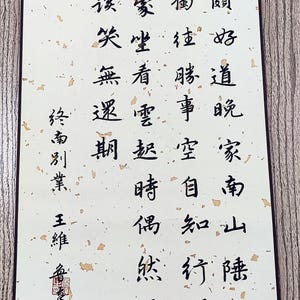 頗好道晚家南山陲
獨往勝事空自知行
處坐看雲起時偶然
談笑無還期
終南別業 王維 魯